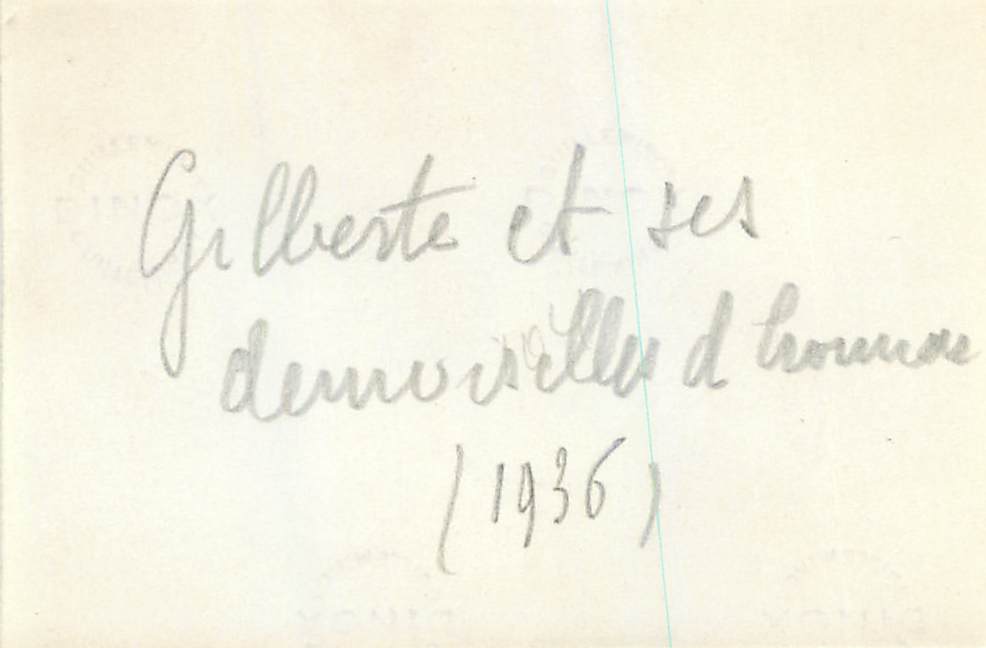 Gilberte et ses
demoiselles d'honneur
(1936)